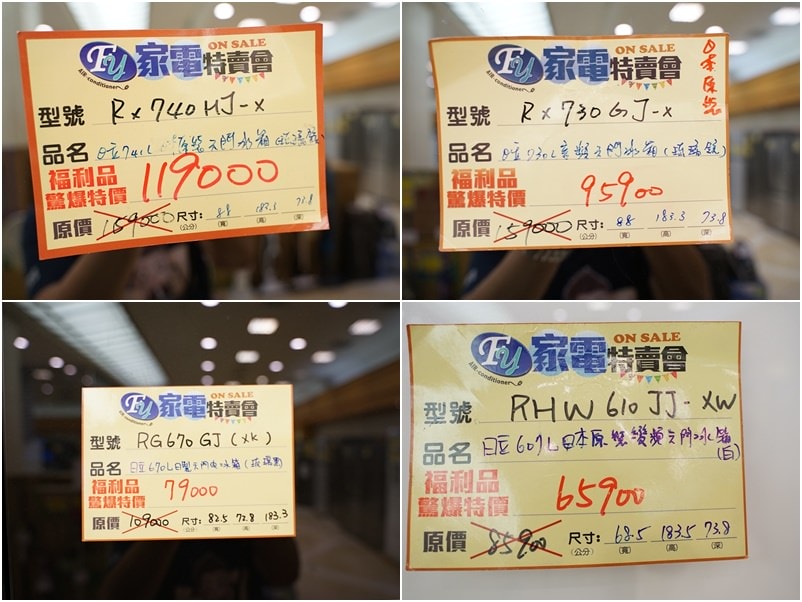 ON SALE
FY 家電特賣會
AIR-conditioner
型號 RX740HJ-X
品名 日立741L 六門冰箱(琉璃鏡)
福利品
驚爆特價 119000
原價 159000 尺寸: 88 183.3 73.8
(公分) (寬) (高) (深)
ON SALE
FY 家電特賣會
AIR-conditioner
日本原裝
型號 RX730GJ-X
品名 日立730L變頻六門冰箱(琉璃鏡)
福利品
驚爆特價 95900
原價 159000 尺寸: 88 183.3 73.8
(公分) (寬) (高) (深)
ON SALE
FY 家電特賣會
AIR-conditioner
型號 RG670GJ(XK)
品名 日立670L日製六門冰箱(琉璃黑)
福利品
驚爆特價 79000
原價 109000 尺寸: 82.5 72.8 183.3
(公分) (寬) (高) (深)
ON SALE
FY 家電特賣會
AIR-conditioner
型號 RHW610JJ-XW
品名 日立607L日本原裝變頻六門冰箱
(白)
福利品
驚爆特價 65900
原價 85900 尺寸: 68.5 183.5 73.8
(公分) (寬) (高) (深)